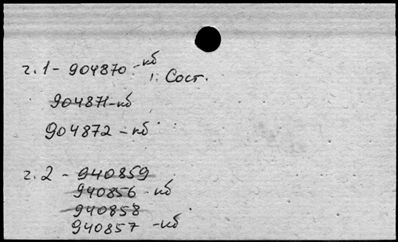 ч.1 - 904870 - кб
1. Сост.
904871-кб
904872 - кб
ч.2 - 940859
940856 - кб
940858
940857 - кб